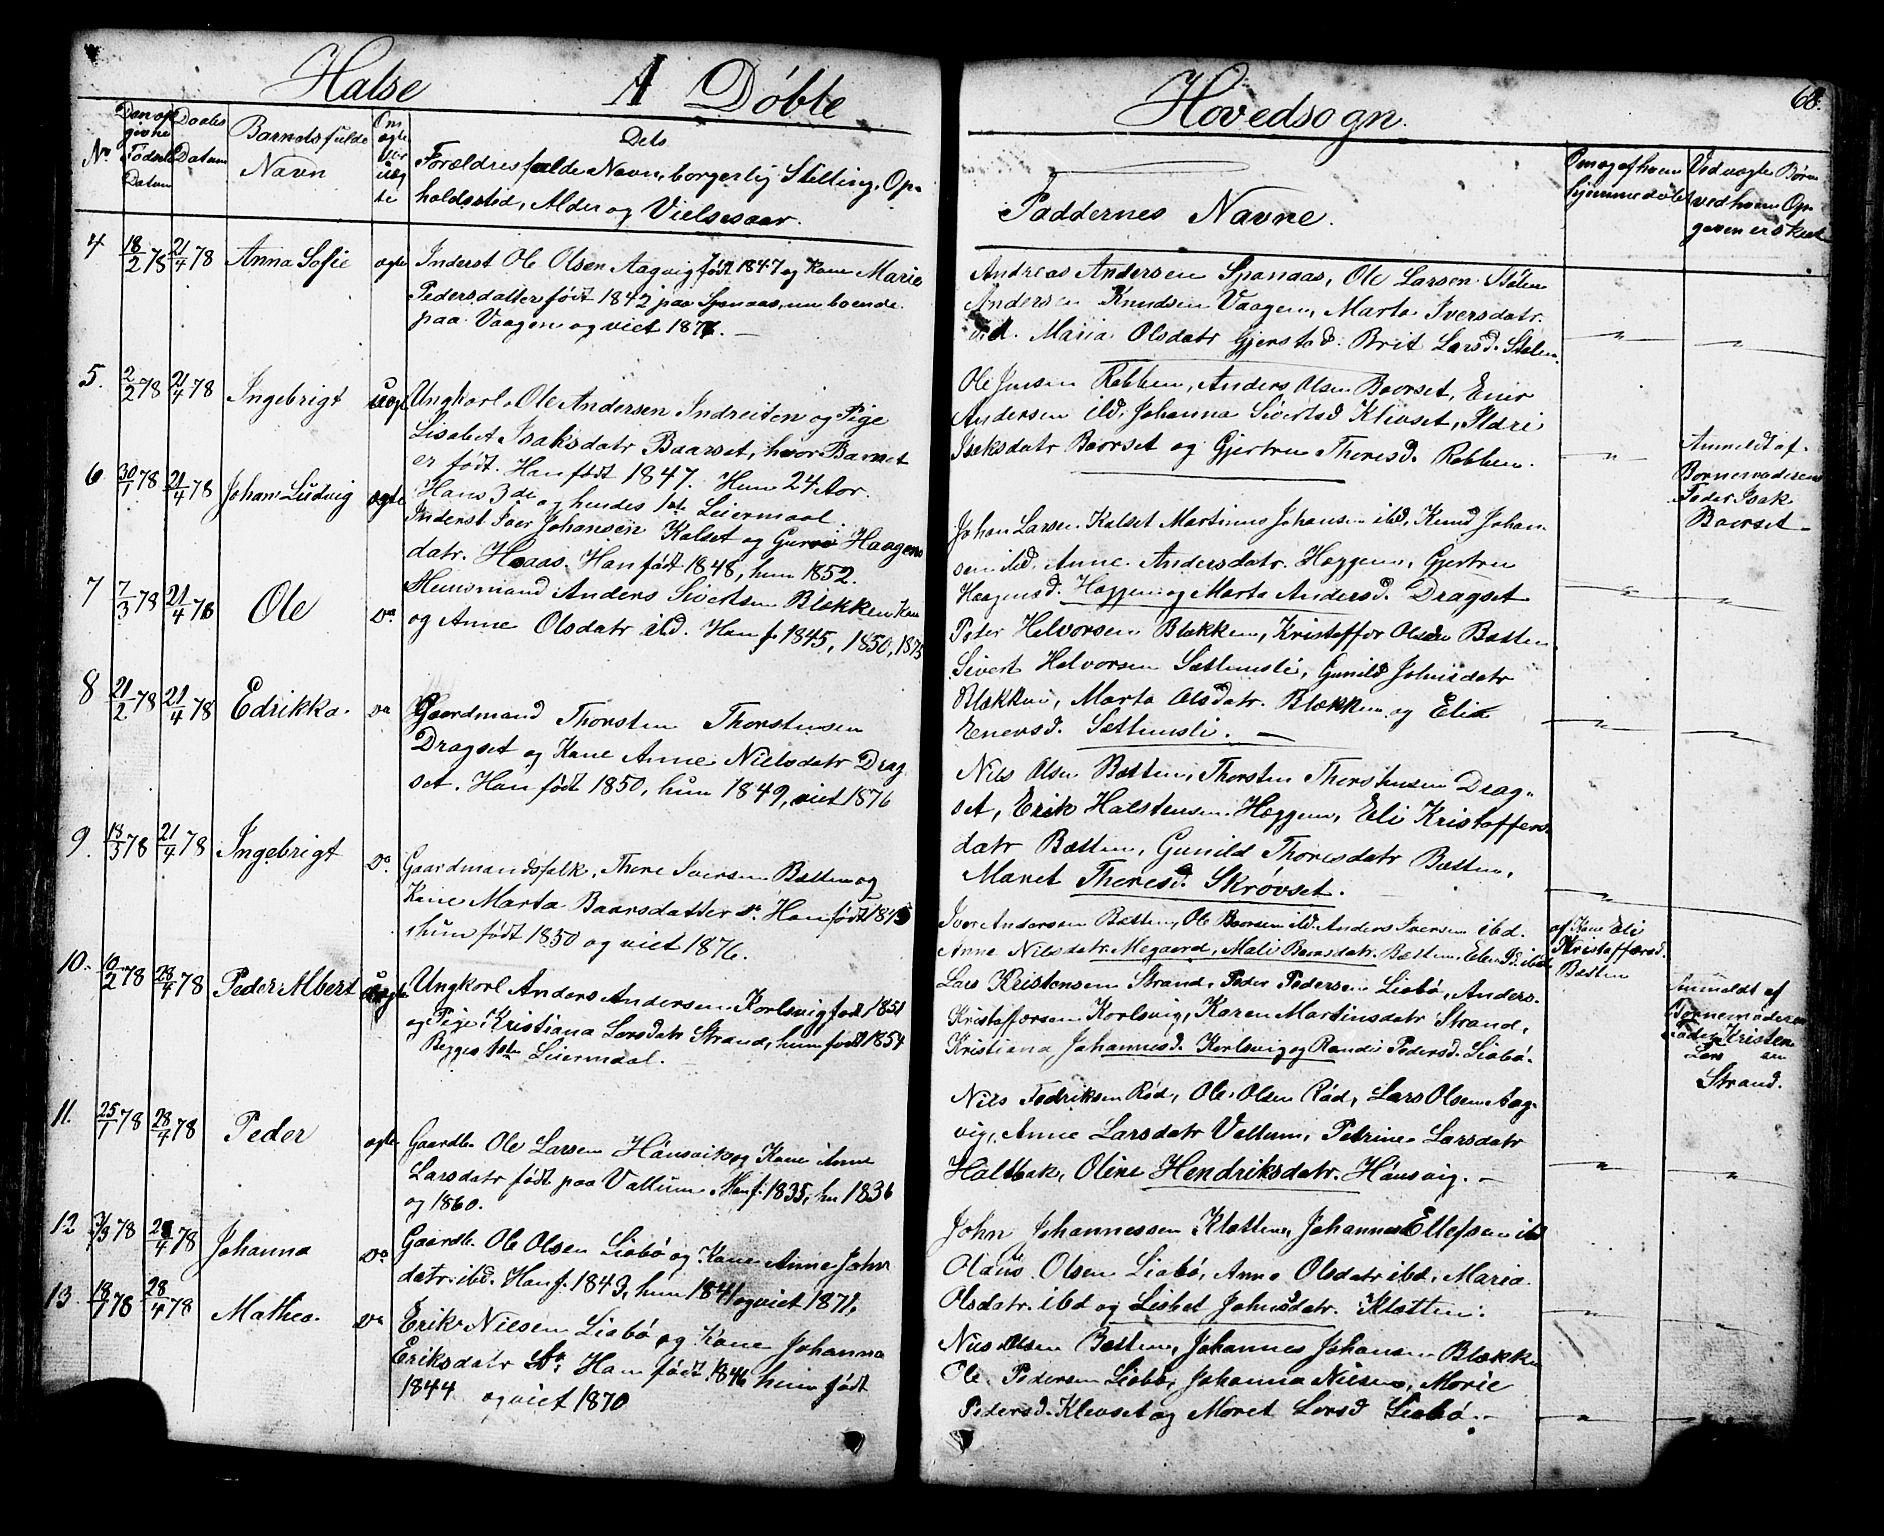 Halse A Døbte
Hovedsogn.
68.
No.
Den opgivne Fødsels Datum
Daabs Datum
Barnets fulde Navn
Om ægte eller uægte
Dets
Forældres fulde Navn, borgerlig Stilling, Op-
holdssted, Alder og Vielsesaar.
Faddernes Navne.
Om og af hvem hjemmedøbt
Ved uægte Børn ved hvem Opgaven er skeet
4 18/2 78 21/4 78 Anna Sofie ægte
Inderst Ole Olsen Aagvig født 1847 og Kone Marie
Pedersdatter født 1842 paa Spanaas, nu boende
paa Vaagen og viet 187
Andreas Andersen Spanaas, Ole Larsen Stølen
Andersen Knudsen Vaagen, Marta Iversdatr.
ibd. Maria Olsdatr Gjerstad. Brit Larsd. Stølen
5. 2/2 78 21/4 78 Ingebrigt uægte
Ungkarl Ole Andersen Indreiten og Pige
Lisabet Isaksdatr Baarset, hvor Barnet
er født. Han født 1847. Hun 24 Aar.
Hans 3de og hendes 1ste Leiermaal.
Ole Jensen Rabben, Anders Olsen Baarset, Ener
Andersen ibd, Johanna Sivertsd Klevset, Ildri
Isaksdatr Baarset og Gjertru Theresd. Rabben.
Anmeldt af
Barnemoderens
Fader Isak
Baarset
6 30/1 78 21/4 78 Johan Ludvig ægte
Inderst Iver Johansen Kalset og Guro Haagens
datr. Haaas. Han født 1848, hun 1852.
Johan Larsen Kalset Martinus Johansen ibd, Knud Johan
sen ibd. Anne Andersdatr. Hæggem, Gjertru
Haagensd. Hæggem og Marta Andersd. Dragset
7 7/3 78 21/4 78 Ole Do
Huusmand Anders Sivertsen Blækken Kone
og Anne Olsdatr ibd. Han f. 1845, 1850, 1875
Peter Halvorsen Blækken, Kristoffer Olsen Bætten
Sivert Halvorsen Sættemsli, Gunild Johnsdatr
Blækken, Marta Olsdatr. Blækken og Elia
Enersd. Sættemsli.
8 21/2 78 21/4 78 Edrikka. Do
Gaardmand Thorsten Thorstensen
Dragset og Kone Anne Nielsdatr Drag
set. Han født 1850, hun 1849, viet 1876
Nils Olsen Bætten, Thorsten Thorstensen Drag-
set, Erik Halstensen Hæggem, Eli Kristoffers
datr Bætten, Gunild Thoresdatr Bætten,
Maret Theresd Skrøvset.
9. 18/3 78 21/4 78 Ingebrigt Do.
Gaardmandsfolk, There Iversen Bætten og
Kone Marta Baarsdatter Do. Han født 1845
hun født 1850 og viet 1876.
Iver Andersen Bætten, Ole Baarsen ibd. Anders Iversen ibd.
Anne Nilsdatr Megaard, Mali Baarsdatr. Bætten, Elen ibd
af Kone Eli
Kristoffersd.
Bætten
10. 10/2 78 28/4 78 Peder Albert uægte
Ungkarl Anders Andersen Korlsvig født 1851
og Pige Kristiana Larsdatr Strand, hun født 1854
Begges 1ste Leiermaal.
Lars Kristensen Strand, Peder Pedersen Liabø, Anders
Kristoffersen Korlsvig, Karen Martinsdatr Strand,
Kristiana Johannesd. Korlsvig og Randi Pedersd. Liabø.
Anmeldt af
Barnemoderens
Fader Kristen
Lars sen
Strand.
11. 25/1 78 28/4 78 Peder ægte
Gaardbr. Ole Larsen Hansvik og Kone Anne
Larsdatr født paa Vallum. Han f. 1835, hun 1836
og 1860.
Nils Fredriksen Rød, Ole Olsen Rød, Lars Olsen Aag-
vig, Anne Larsdatr Vallum, Petrine Larsdatr
Halsbak, Oline Hendriksdatr. Hansvig.
12 3/3 78 28/4 78 Johanna Do
Gaardbr. Ole Olsen Liabø og Kone Anne John
datr. ibd. Han f. 1843, hun 1841 og viet 1871.
John Johannessen Klætten, Johannes Ellefsen ibd
Olaus Olsen Liabø, Anne Olsdatr ibd, Maria
Olsdatr. ibd og Lisbet Johnsdatr. Klætten.
13. 18/1 78 28/4 78 Mathea. Do
Erik Nilsen Liabø og Kone Johanna
Eriksdatr Do. Han født 1846 hun født
1844 og viet 1870
Nils Olsen Bætten, Johannes Johansen Blækken
Ole Pedersen Liabø, Johanna Nilsen, Marie
Pedersd. Klevset og Maret Larsd Liabø.